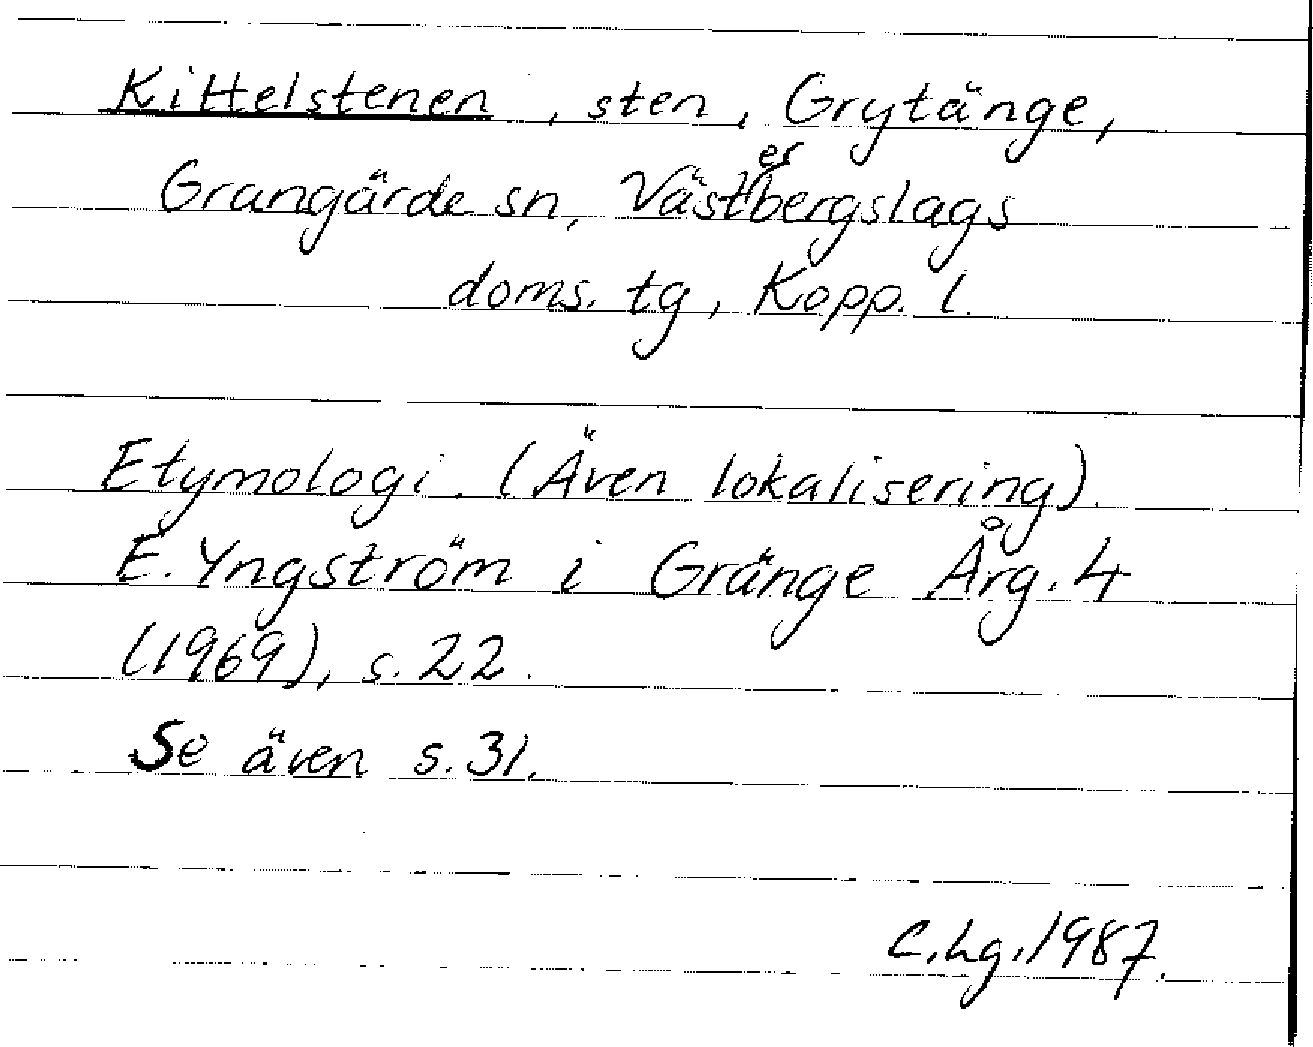 Kittelstenen, sten, Grytänge,
Grangärde sn, Västerbergslags
doms. tg, Kopp. l.
Etymologi. (Även lokalisering).
E. Yngström i Gränge Årg. 4
(1969), s. 22.
Se även s. 31.
C. Lg. 1987.